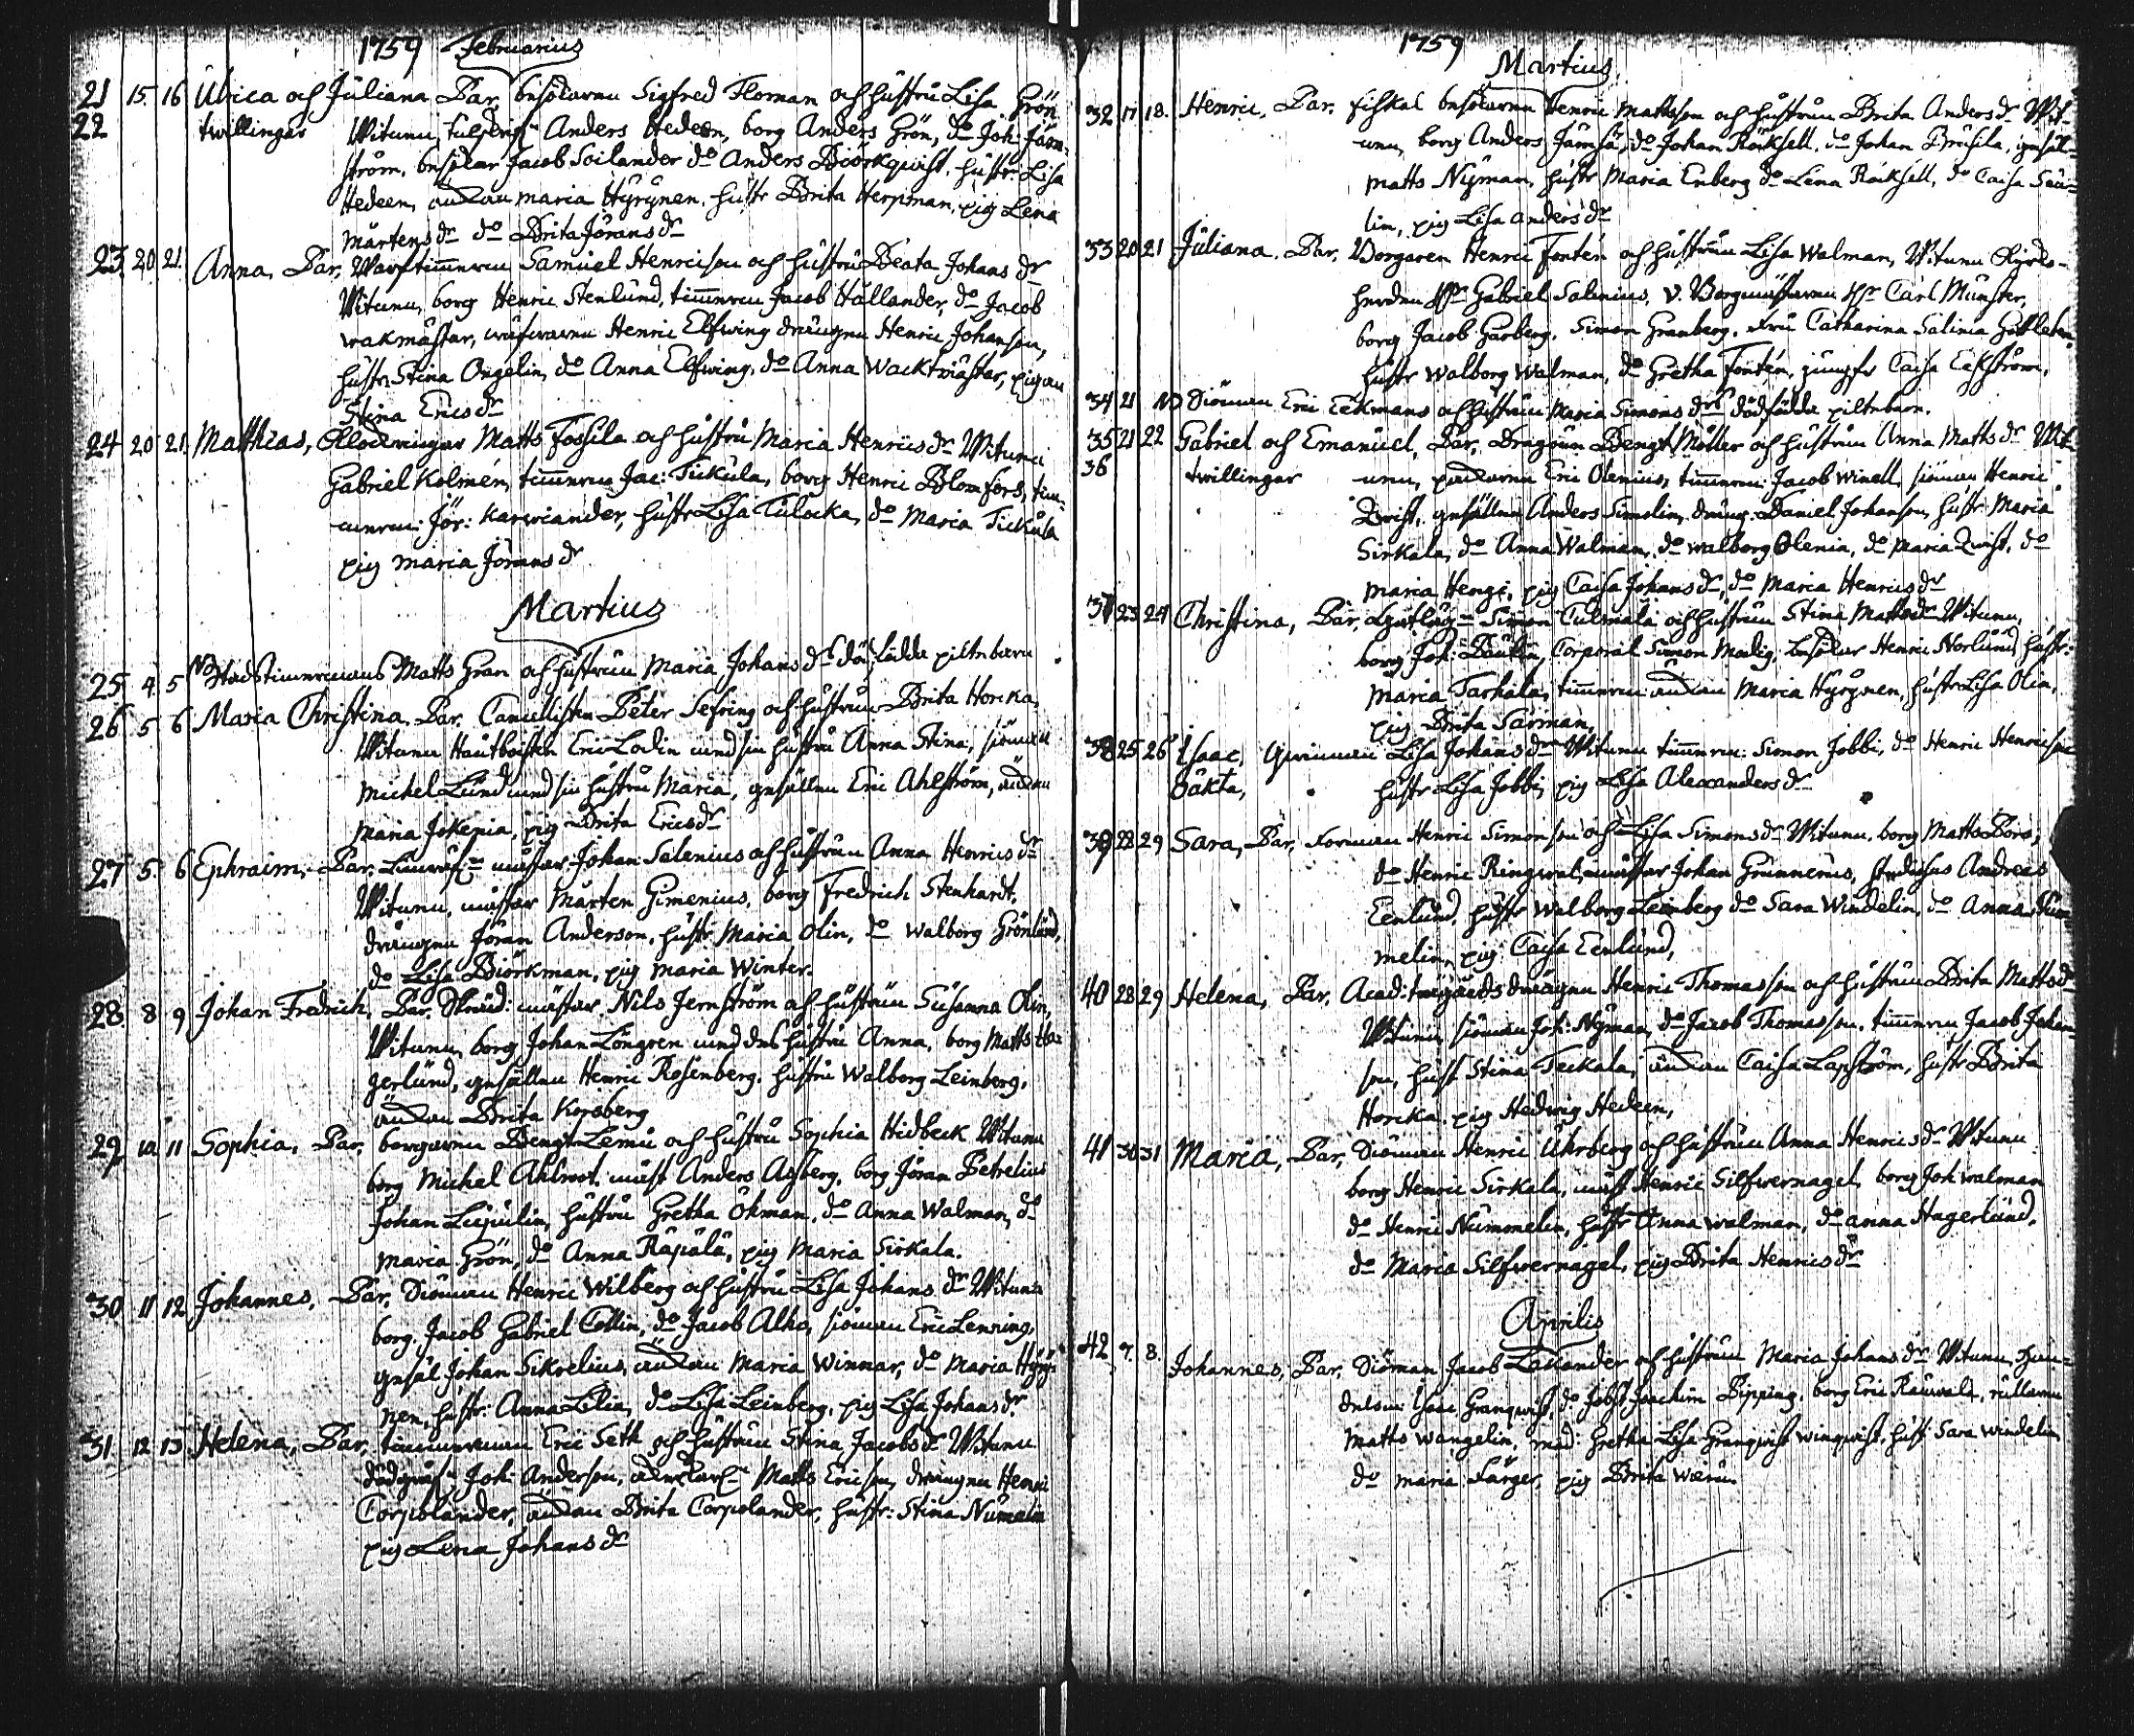 1759 Februarius
21 15. 16 Ulrica och Juliana Par, besökaren Sigfred Floman och hustru Lisa Grön
22 twillingar Witunu, Anders Hedeen, borg Anders Grön, do Joh: Järn-
ström, besökar Jacob Soilander do Anders Biörkqwist, hustr: Lisa
Hedeen, änckan Maria Hyrynen, hustr Brita Herpman, pig Lena
Mårtens dr do Brita Jörans dr
23 20 21. Anna, Par, Warftimmerm Samuel Henricson och hustru Beata Johans dr
Witunu, borg Henric Stenlund, timmerm Jacob Hallander, do Jacob
wakmästar, wäfwaren Henric Elfwing drängen Henric Johanson,
hustr Stina Ongelin, do Anna Elfwing, do Anna Wacktmästar, pigan
Stina Erics dr
24 20 21. Matthias, Klockringar Matts Fossila och hustru Maria Henrics dr Witunu
Gabriel Kolmén, timmerm Jac: Tickula, borg Henric Blomfors, tim-
merm: Jör: Karwiander, hustr Lisa Tulocka, do Maria Tickula
pig Maria Jörans dr
Martius
25 4 5 NB Stadstimmermans Matts Gran och hustrun Maria Johans dr dödfödde piltebarn
26 5 6 Maria Christina, Par. Cancellisten Peter Sefring och hustrun Brita Horcka,
Witunu Hautboisten Eric Lodin med sin hustru Anna Stina, siöman
Michel Lund med sin hustru Maria, gesällen Eric Ahlström, änckan
Maria Jokenia, pig Brita Erics dr
27 5. 6 Ephraim, Par. Linwäf: mästar Johan Salenius och hustrun Anna Henrics dr
Witunu, mästar Mårten Gimenius, borg Fredrich Stenhardt,
drängen Jöran Anderson, hustr Maria Olin, do Walborg Grönlund,
do Lisa Biörkman, pig Maria Winter.
28 8 9 Johan Fredrich, Par, Skräd: mästar Nils Jernström och hustrun Susanna Olin,
Witunu, borg Johan Löngren med des hustru Anna, borg Matts Ha-
gerlund, gesällen Henric Rosenberg, hustru Walborg Leinberg,
änckan Brita Korsberg
29 10 11 Sophia, Par, borgaren Bengt Lemu och hustru Sophia Hidbeck Witunu
borg Michel Ahlroot, mäst Anders Asberg, borg Jöran Petrelius
Johan Lupulin, hustru Gretha Öhman, do Anna Walman, do
Maria Grön, do Anna Räpälä, pig Maria Sirkala.
30 11 12 Johannes, Par, Siöman Henric Wilberg och hustru Lisa Johans dr Witunu
borg. Jacob Gabriel Collin, do Jacob Alho, siöman Eric Lenring,
gesäl Johan Sikvelius, änckan Maria Winnar, do Maria Hyry-
nen, hustr: Anna Lilia, do Lisa Leinberg, pig Lisa Johans dr
31. 12 13 Helena, Par, timmerman Eric Seth och hustrun Stina Jacobs dr Witunu
dödgräf: Joh: Anderson, Matts Ericson, drängen Henric
Corpolander, änckan Brita Corpolander, hustr: Stina Numelin
pig Lena Johans dr
1759
Martius
32 17 18. Henric, Par. fiskal besökaren Henric Mattsson och hustrun Brita Anders dr Wit-
unu, borg Anders Jämsä, do Johan Röcksell, do Johan Brusila, gesäl-
Matts Nyman, hustr Maria Enberg do Lena Röcksell, do Caisa Säu-
lin, pig Lisa Anders dr
33 20 21 Juliana, Par, Borgaren Henric Fontén och hustrun Lisa Walman, Witunu Kyrko-
herden Hr Gabriel Salenius, V. Borgmästaren Hr Carl Munster,
borg Jacob Garberg, Simon Granberg, Fru Catharina Salinia Gottleben,
hustr Walborg Walman, do Gretha Fontén, jungfr Caisa Eckström,
34 21 NB Siöman Eric Eckmans och hustrun Maria Simons drs dödfödde piltebarn.
35 21 22 Gabriel och Emanuel, Par, Dragoun Bengt Möller och hustrun Anna Matts dr Wit-
36 twillingar unu, packaren Eric Olenius, timmerm: Jacob Winell, siöman Henric
Qvist, gesällen Anders Simelin, dräng. Daniel Johanson, hustr Maria
Sirkala, do Anna Walman, do Walborg Olenia, do Maria Qvist, do
Maria Hengi, pig Caisa Johans dr, do Maria Henrics dr
37 23 24 Christina, Par, Simon Culmala och hustrun Stina Matts dr Witunu,
borg Joh: Paulin, Corporal Simon Modig, besökar Henric Norlund, hustr:
Maria Tarhala, timmerm änckan Maria Hyrynen, hustr Lisa Olin,
pig Brita Särman,
38 25 26 Isaac, Qwinnan Lisa Johans dr Witunu timmerm: Simon Jobbi, do Henric Henricson
oäkta, hustr Lisa Jobbi, pig Lisa Alexanders dr
39 28 29 Sara, Par, Forman Henric Simonson och Lisa Simons dr Witunu. borg Matts Boro,
do Henric Ringwal, mästar Johan Grunnerus, studiosus Andreas
Eenlund, hustr Walborg Leinberg do Sara Windelin, do Anna Num-
melin, pig Caisa Eenlund,
40 28 29 Helena, Par, Acad: trägårds drängen Henric Thomasson och hustrun Brita Matts dr
Witunu, siöman Joh: Nyman, do Jacob Thomasson, timmerm Jacob Johan-
son, hust Stina Teckala, änckan Caisa Lapström, hustr Brita
Horcka, pig Hedwig Hedeen,
41 30 31 Maria, Par, Siöman Henric Uhrberg och hustrun Anna Henrics dr Witunu
borg Henric Sirkala, mäst Henric Silfwernagel, borg Joh Walman
do Henric Nummelin, hustr Anna Walman, do Anna Hagerlund,
do Maria Silfwernagel, pig Brita Henrics dr
Aprilis
42 7. 8. Johannes, Par, Siöman Jacob Lakander och hustrun Maria Johans dr Witunu, han-
delsm: Isaac Granqwist, do Jobst Joachim Pipping, borg Eric Rauwald,
Matts Wangelin, mad: Gretha Lisa Granqwist Winqwist, hust: Sara Windelin
do Maria Färger, pig Brita